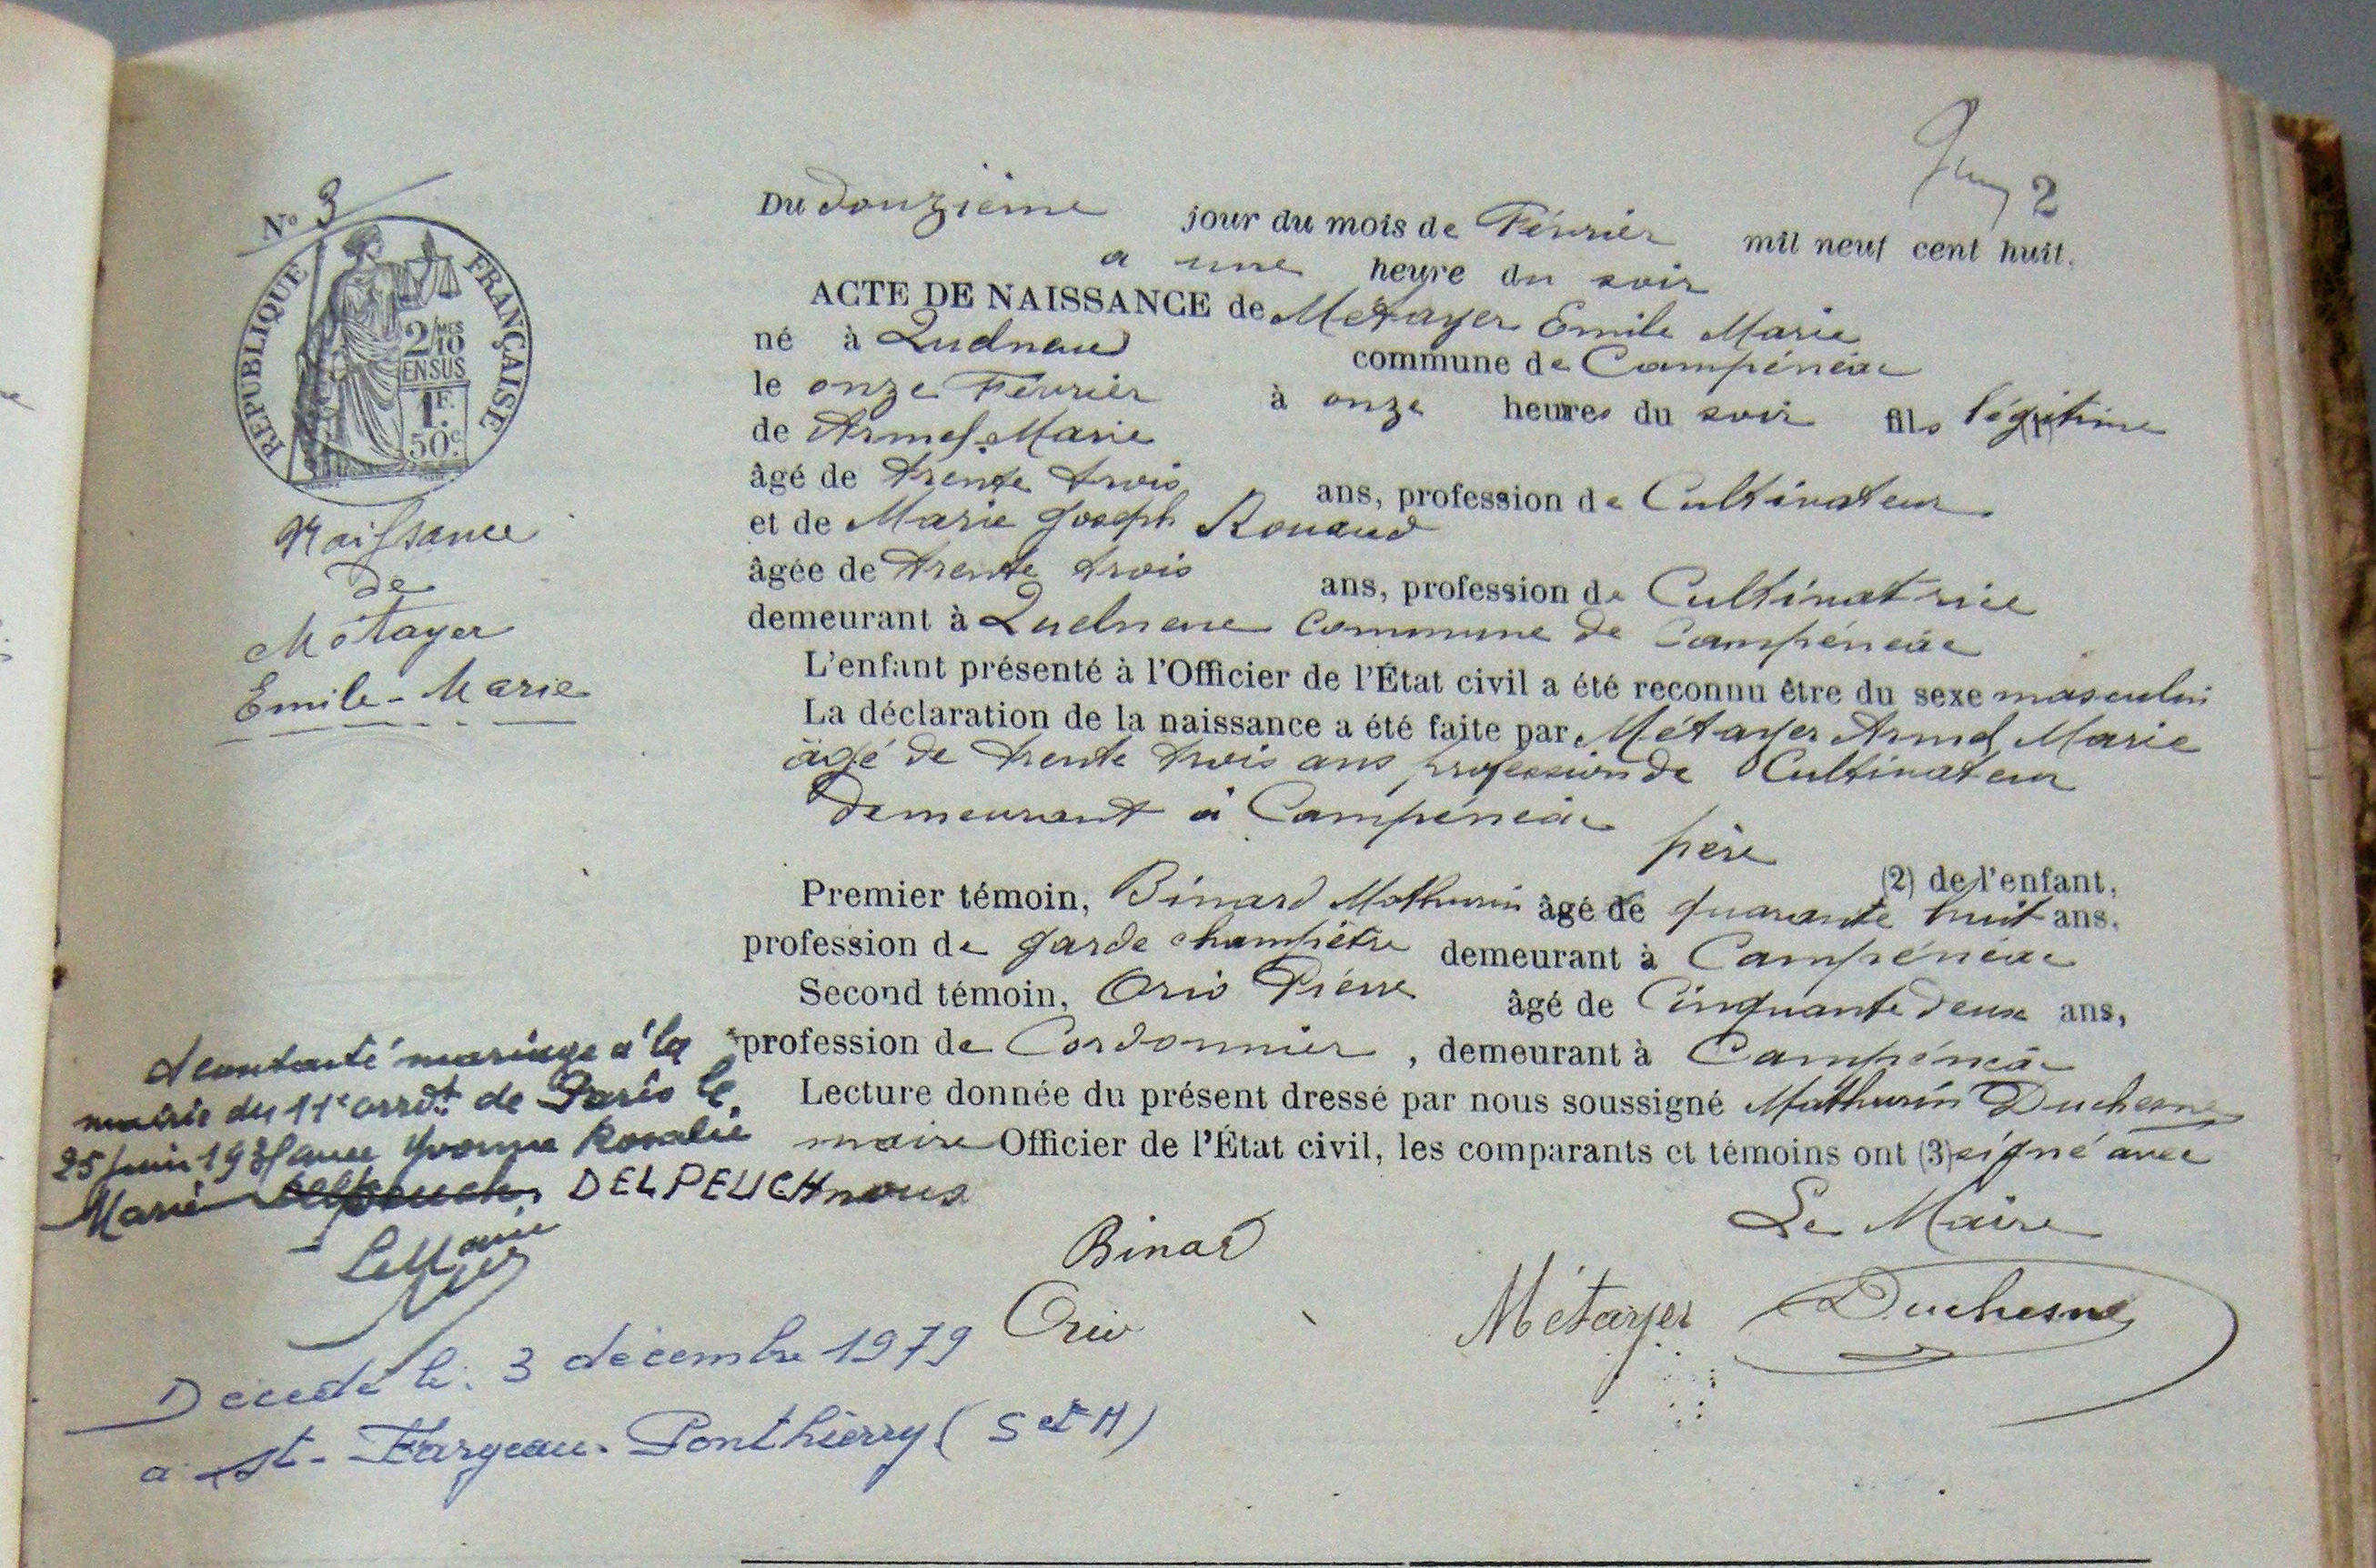 2
N° 3
RÉPUBLIQUE FRANÇAISE
2/10 MES
EN SUS
1F.
50c.
Naissance
de
Métayer
Emile-Marie
Du douzième jour du mois de Février mil neuf cent huit.
a une heure du soir
ACTE DE NAISSANCE de Métayer Emile Marie
né à commune de Campénéac
le onze Février à onze heures du soir fils légitime (1)
de Armel Marie
âgé de trente trois ans, profession de Cultivateur
et de Marie Joseph Rouaud
âgée de trente trois ans, profession de Cultivatrice
demeurant à commune de Campénéac
L'enfant présenté à l'Officier de l'État civil a été reconnu être du sexe masculin
La déclaration de la naissance a été faite par Métayer Armel Marie
âgé de trente trois ans profession de Cultivateur
demeurant à Campénéac
père (2) de l'enfant,
Premier témoin, Binard Mathurin âgé de quarante huit ans,
profession de garde champêtre demeurant à Campénéac
Second témoin, Orio Pierre âgé de Cinquante deux ans,
profession de Cordonnier, demeurant à Campénéac
Lecture donnée du présent dressé par nous soussigné Mathurin Duchesne
maire Officier de l'État civil, les comparants et témoins ont (3) signé avec
nous
Le Maire
Binard
Orio
Métayer
Duchesne
A contracté mariage à la
mairie du 11e arrdt de Paris le
25 juin avec Yvonne Rosalie
Marie DELPEUCH
Le Maire
Décédé le 3 décembre 1979
a St-Fargeau-Ponthierry (S et M)